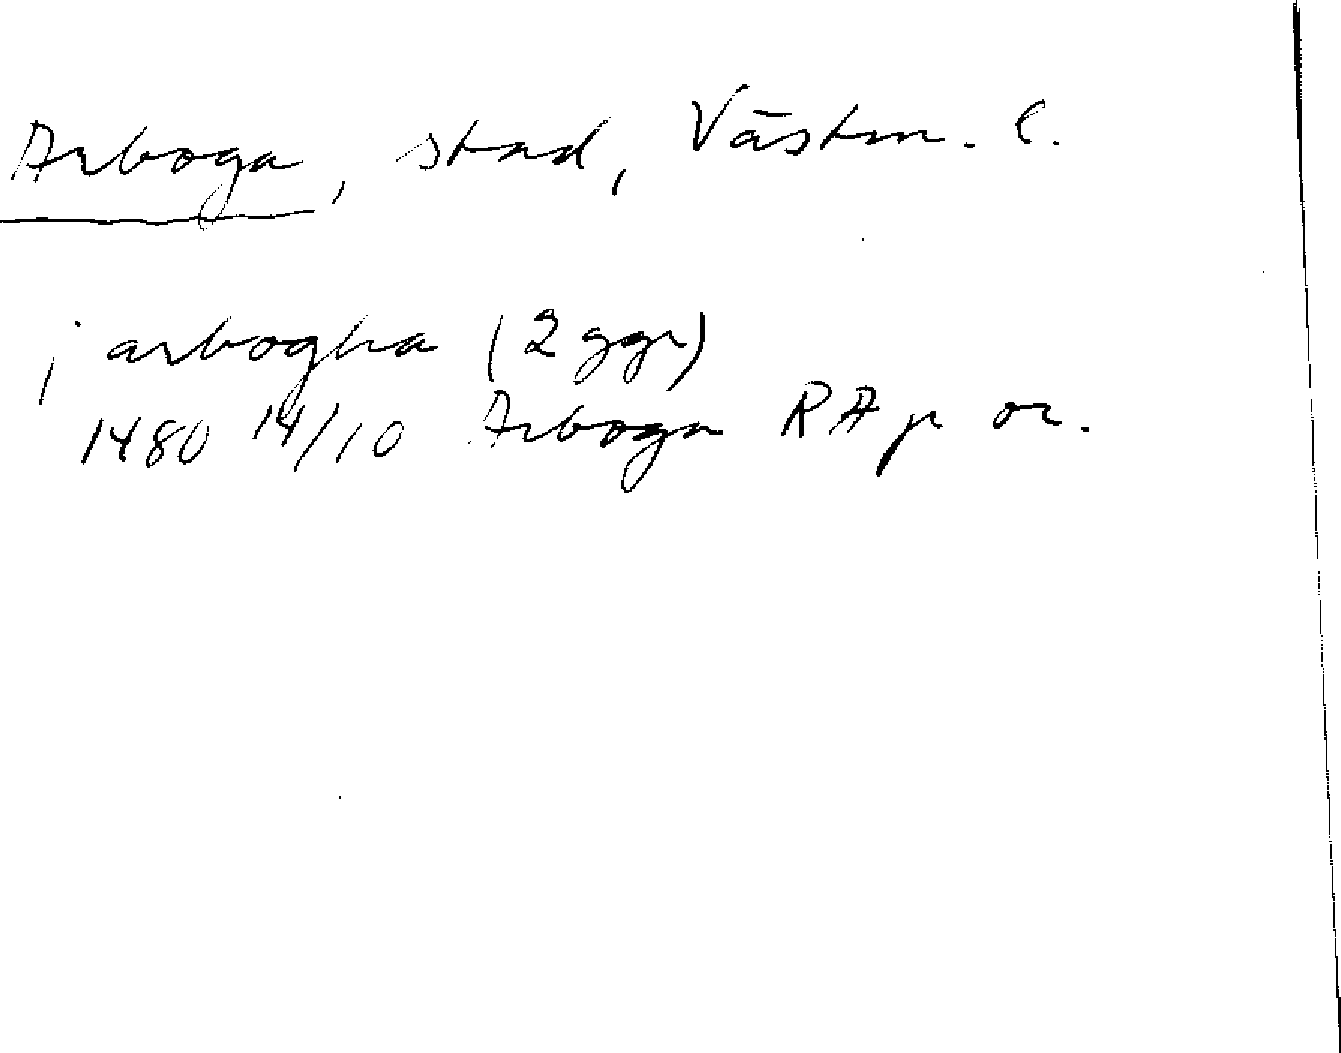 Arboga, stad, Västm. l.
j arbogha (2 ggr)
1480 14/10 Arboga RAp or.